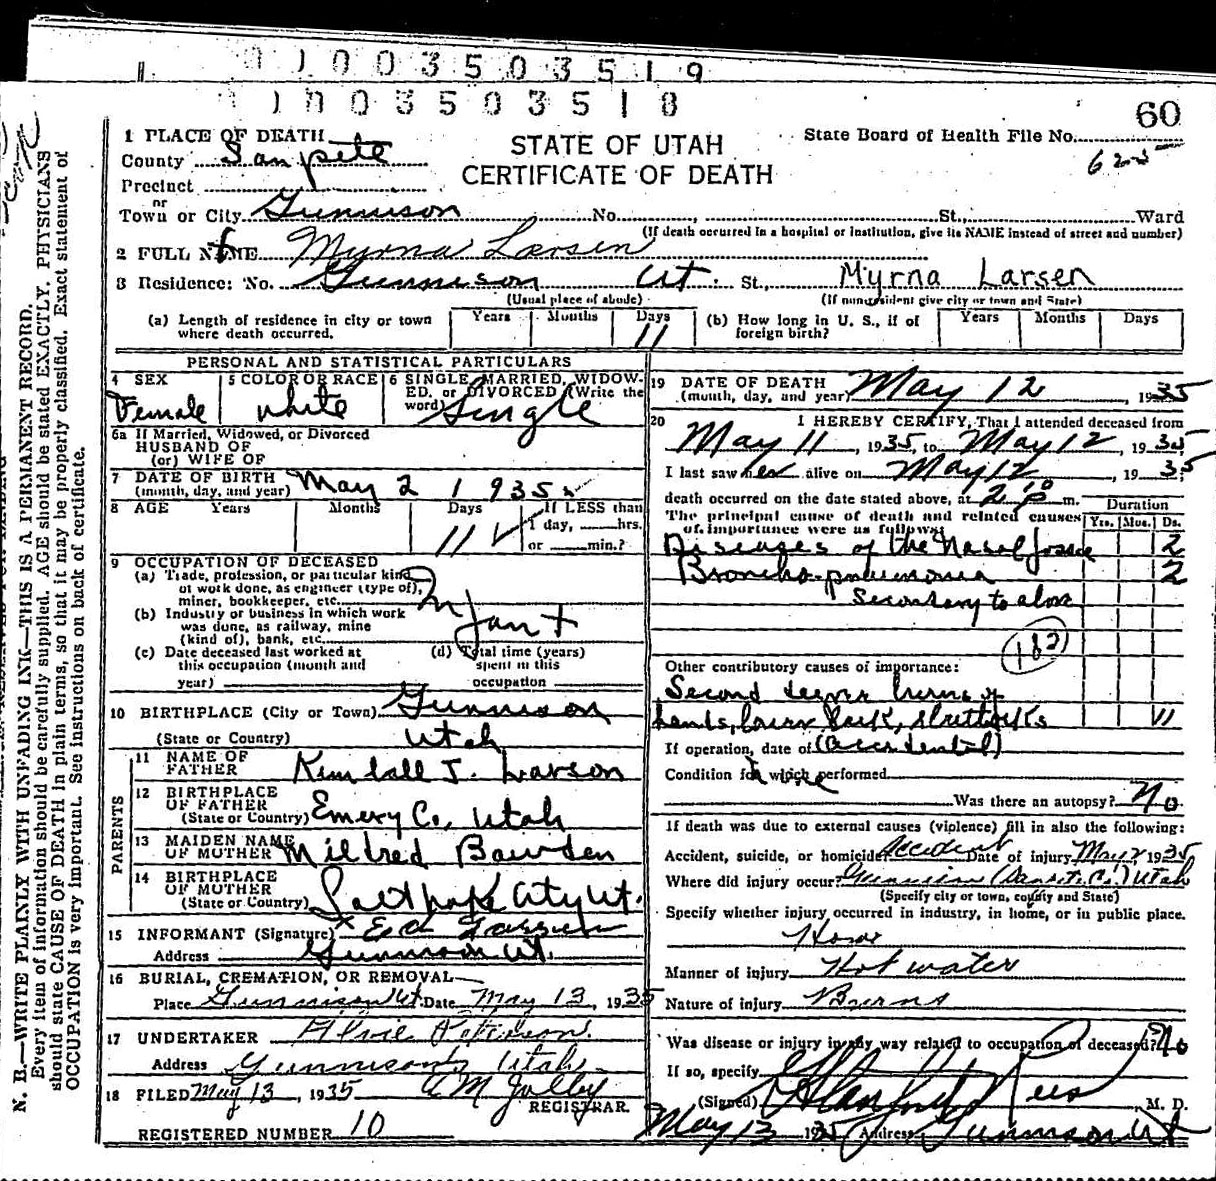 1 0 0 3 5 0 3 5 1 9
1 0 0 3 5 0 3 5 1 8
60
STATE OF UTAH
CERTIFICATE OF DEATH
State Board of Health File No.
625
1 PLACE OF DEATH
County San pete
Precinct
or
Town or City Gunnison No. , St., Ward
(If death occurred in a hospital or institution, give its NAME instead of street and number)
2 FULL NAME Myrna Larsen
3 Residence: No. Gunnison Ut. St., Myrna Larsen
(Usual place of abode) (If nonresident give city or town and State)
(a) Length of residence in city or town where death occurred. Years Months Days 11
(b) How long in U. S., if of foreign birth? Years Months Days
PERSONAL AND STATISTICAL PARTICULARS
4 SEX Female
5 COLOR OR RACE white
6 SINGLE, MARRIED, WIDOWED, or DIVORCED (Write the word) Single
6a If Married, Widowed, or Divorced
HUSBAND OF
(or) WIFE OF
7 DATE OF BIRTH (month, day, and year) May 2 1935
8 AGE Years Months Days 11 If LESS than 1 day, hrs. or min.?
9 OCCUPATION OF DECEASED
(a) Trade, profession, or particular kind of work done, as engineer (type of), miner, bookkeeper, etc.
(b) Industry or business in which work was done, as railway, mine (kind of), bank, etc.
(c) Date deceased last worked at this occupation (month and year)
(d) Total time (years) spent in this occupation
10 BIRTHPLACE (City or Town) Gunnison
(State or Country) Utah
PARENTS
11 NAME OF FATHER Kimball J. Larson
12 BIRTHPLACE OF FATHER (State or Country) Emery Co., Utah
13 MAIDEN NAME OF MOTHER Mildred Bawden
14 BIRTHPLACE OF MOTHER (State or Country) Salt Lake City Ut.
15 INFORMANT (Signature) x Ed
Address Gunnison Ut.
16 BURIAL, CREMATION, OR REMOVAL
Place Gunnison Ut. Date May 13, 1935
17 UNDERTAKER
Address Gunnison, Utah
18 FILED May 13, 1935 REGISTRAR.
REGISTERED NUMBER 10
19 DATE OF DEATH (month, day, and year) May 12, 1935
20 I HEREBY CERTIFY, That I attended deceased from
May 11, 1935, to May 12, 1935
I last saw her alive on May 12, 1935
death occurred on the date stated above, at 2 p m.
The principal cause of death and related causes of importance were as follows: Duration Yrs. Mos. Ds.
Diseases of the Nasal fossae 2
Broncho-pneumonia 2
Secondary to above
182
Other contributory causes of importance:
Second degree burns of
hands, lower back, buttocks 11
(accidental)
If operation, date of
Condition for which performed
Was there an autopsy? No
If death was due to external causes (violence) fill in also the following:
Accident, suicide, or homicide? Accident Date of injury May 2 1935
Where did injury occur? Gunnison (Sanpete Co.) Utah
(Specify city or town, county and State)
Specify whether injury occurred in industry, in home, or in public place.
Home
Manner of injury Hot water
Nature of injury Burns
Was disease or injury in any way related to occupation of deceased? No
If so, specify
(Signed) Rees, M. D.
May 12 1935 Address Gunnison Ut
N. B.—WRITE PLAINLY WITH UNFADING INK—THIS IS A PERMANENT RECORD.
Every item of information should be carefully supplied. AGE should be stated EXACTLY. PHYSICIANS
should state CAUSE OF DEATH in plain terms, so that it may be properly classified. Exact statement of
OCCUPATION is very important. See instructions on back of certificate.